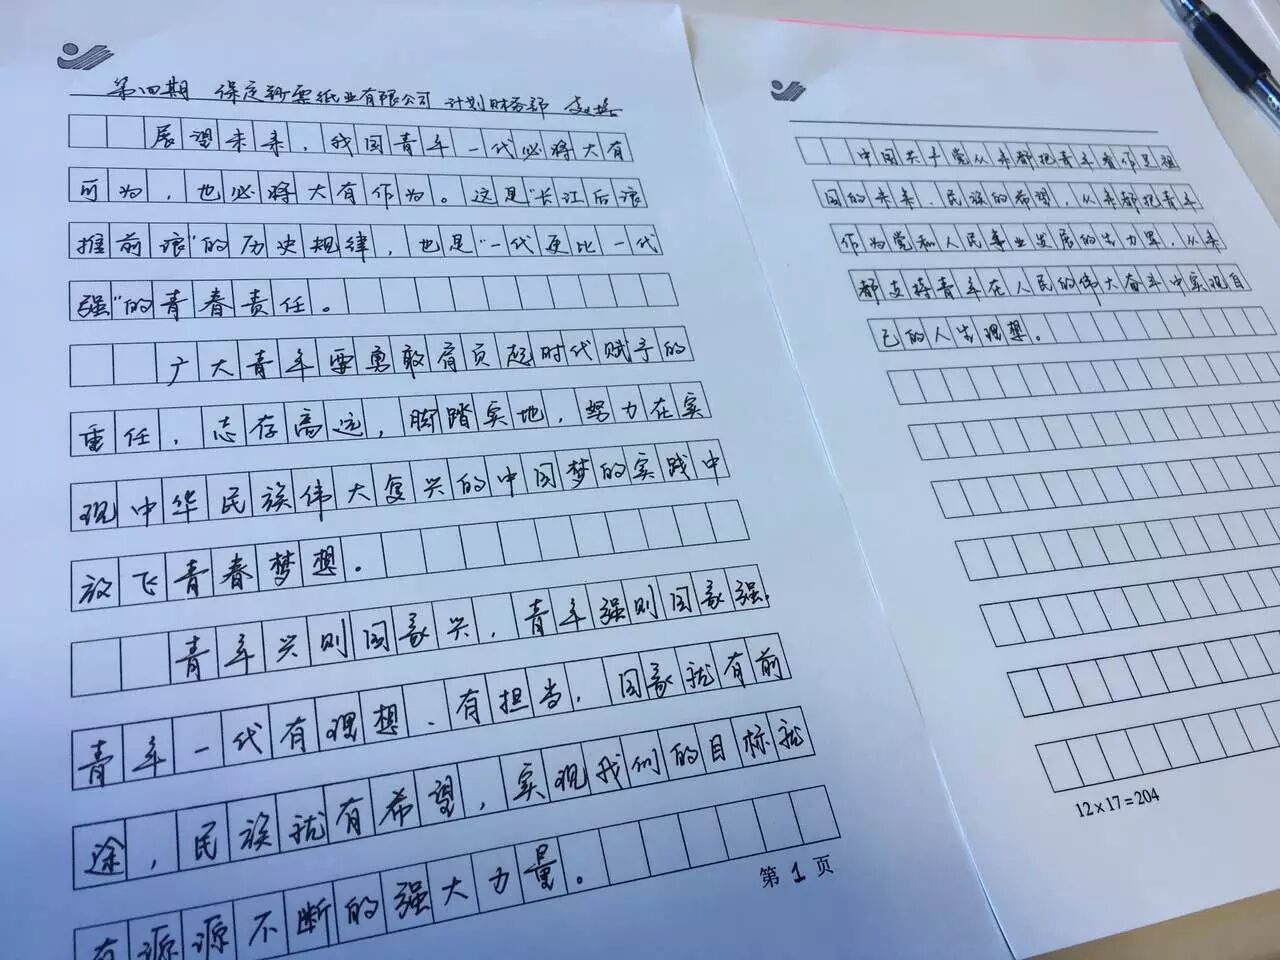 第四期 保定钞票纸业有限公司 计划财务部
展望未来，我国青年一代必将大有
可为，也必将大有作为。这是“长江后浪
推前浪”的历史规律，也是“一代更比一代
强”的青春责任。
广大青年要勇敢肩负起时代赋予的
重任，志存高远，脚踏实地，努力在实
现中华民族伟大复兴的中国梦的实践中
放飞青春梦想。
青年兴则国家兴，青年强则国家强，
青年一代有理想、有担当，国家就有前
途，民族就有希望，实现我们的目标就
有源源不断的强大力量。
第1页
中国共产党从来都把青年看作是祖
国的未来、民族的希望，从来都把青年
作为党和人民事业发展的生力军，从来
都支持青年在人民的伟大奋斗中实现自
己的人生理想。
12×17=204